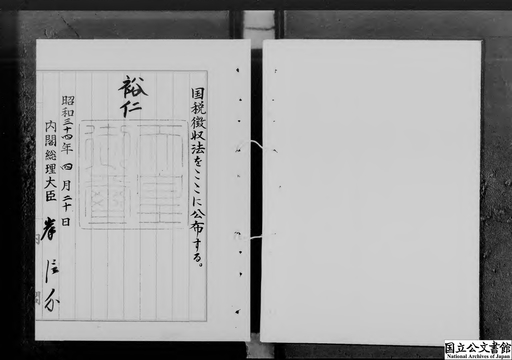 国税徴収法をここに公布する。
裕仁
昭和三十四年四月二十日
内閣総理大臣 岸信介
国立公文書館
National Archives of Japan